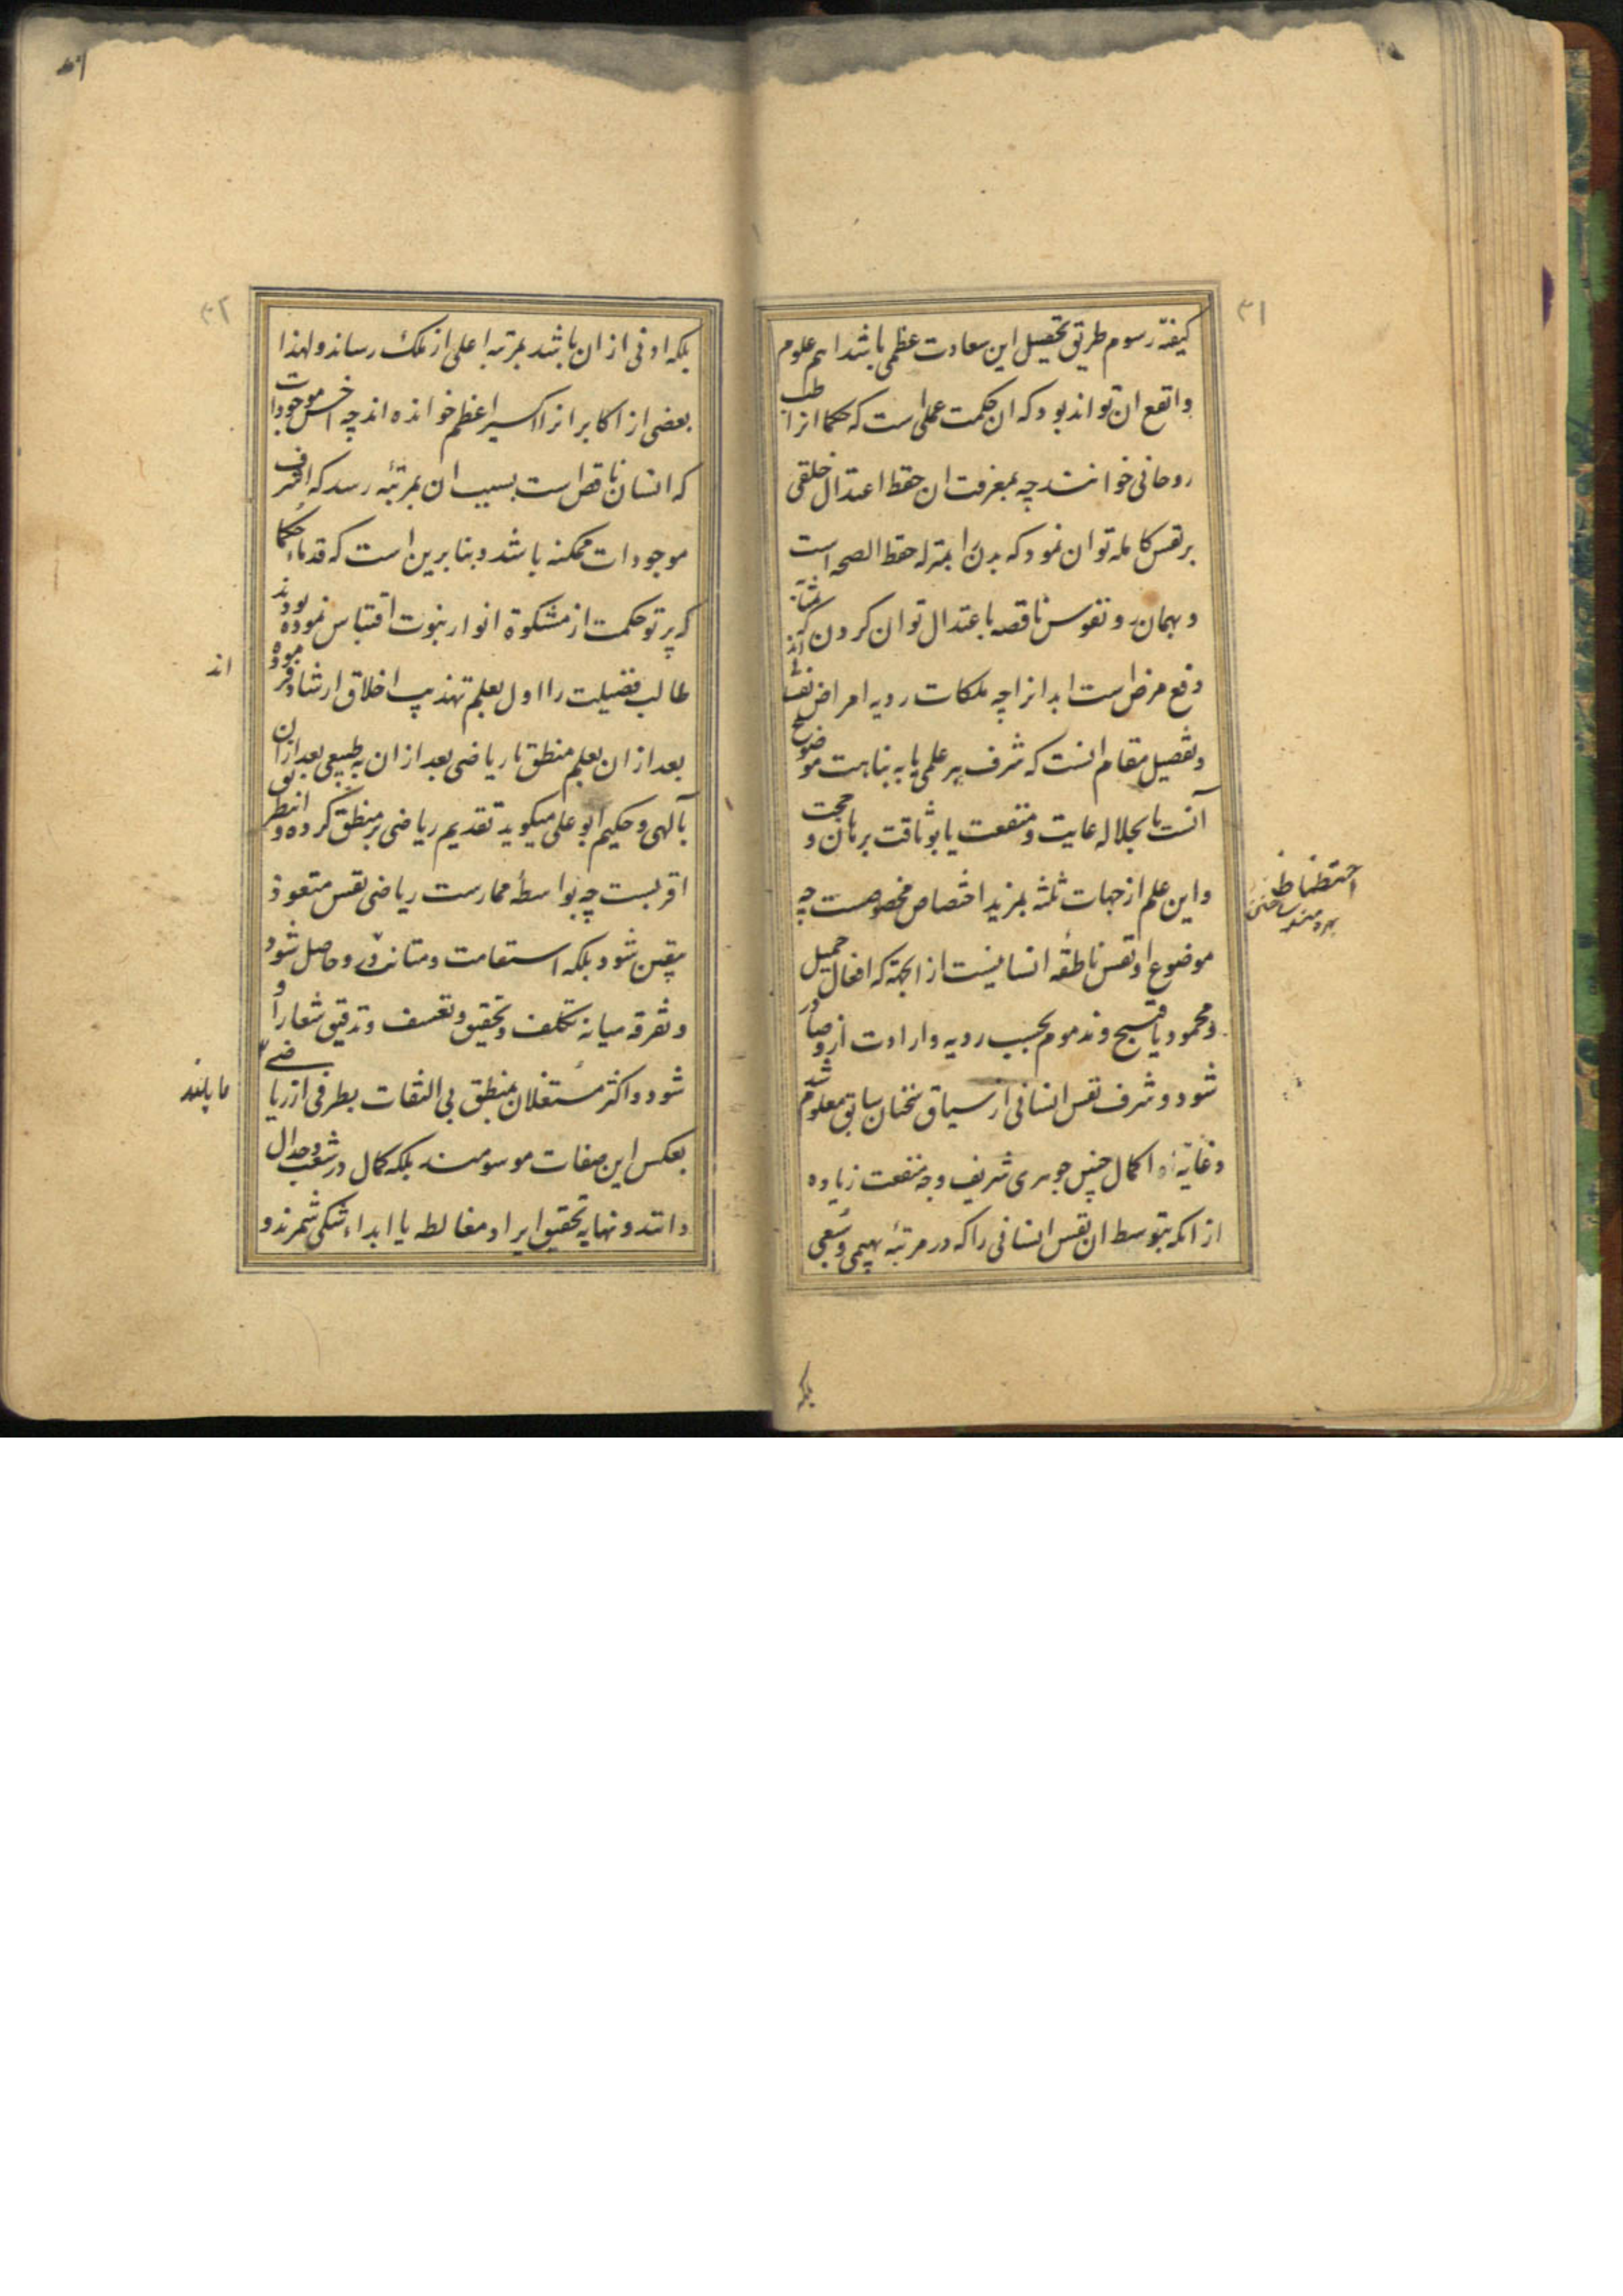 ۳۱
کیفیّه رسوم طریق تحصیل این سعادت عظمی باشد اهم علوم
وانفع ان تواند بود که ان حکمت عملی است که حکما انرا طب
روحانی خوانند چه بمعرفت ان حفظ اعتدال خلقی
بر نفس کامله توان نمود که بدن را بمنزله حفظ الصحه است
و بهمان رد نفوس ناقصه باعتدال توان کردن که بمثابه
دفع مرض است ابدانرا چه ملکات ردیه امراض نفسانی اند
وتفصیل مقام انست که شرف هر علمی یا به نباهت موضوع
آنست یا بجلاله غایت و منفعت یا بوثاقت برهان و حجت
واین علم از جهات ثلثه بمزید اختصاص مخصوصست چه
موضوع او نفس ناطقه انسانیست از انجهة که افعال جمیل
ومحمود یا قبیح ومذموم بحسب رویه وارادت ازو صادر
شود وشرف نفس انسانی از سیاق سخنان سابق معلوم شد
وغایة او اکمال چنین جوهری شریف وچه منفعت زیاده
از انکه بتوسط ان نفس انسانی را که در مرتبه بهیمی وسبعی
احتظاظ
بهره مند ساختن
بلکه
۳۲
بلکه ادنی از ان باشد بمرتبه اعلی از ملک رساند ولهذا
بعضی از اکابر انرا اکسیر اعظم خوانده اند چه اخس موجودات
که انسان ناقص است بسبب ان بمرتبه رسد که اشرف
موجودات ممکنه باشد وبنا برین است که قدماء حکما
که پرتو حکمت از مشکوة انوار نبوت اقتباس نموده بودند
طالب فضیلت را اول بعلم تهذیب اخلاق ارشاد فرموده
اند
بعد از ان بعلم منطق تا ریاضی بعد از ان به طبیعی بعد از ان
بآلهی وحکیم ابو علی میگوید تقدیم ریاضی بر منطق کرده و
اقربست چه بواسطه ممارست ریاضی نفس متعود
بیقین شود بلکه استقامت ومتانت در و حاصل شود
وتفرقه میانه تکلف وتحقیق وتعسف وتدقیق شعار او
شود واکثر مشتغلان بمنطق بی التفات بطرفی از ریاضی
بعکس این صفات موسومند بلکه کمال در شغب وجدال
دانند ونهایه تحقیق ایراد مغالطه یا ابداء شکی شمرند و